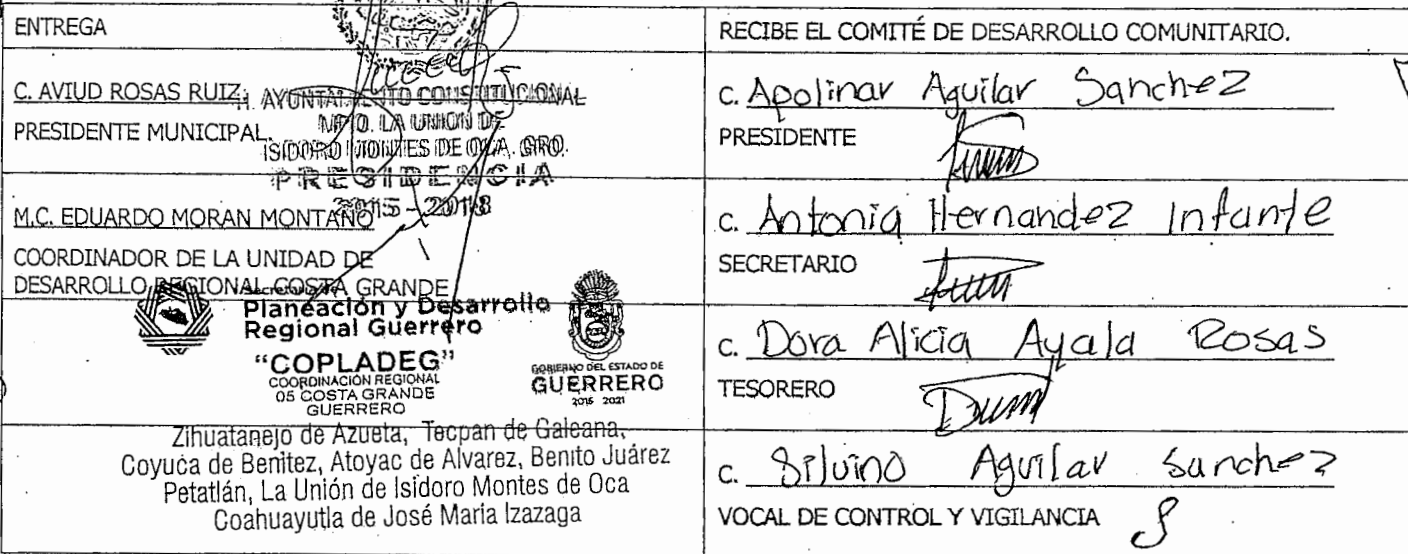 ENTREGA
C. AVIUD ROSAS RUIZ
PRESIDENTE MUNICIPAL.
H. AYUNTAMIENTO CONSTITUCIONAL
MPIO. LA UNION DE
ISIDORO MONTES DE OCA. GRO.
PRESIDENCIA
2015 - 2018
M.C. EDUARDO MORAN MONTAÑO
COORDINADOR DE LA UNIDAD DE
DESARROLLO REGIONAL COSTA GRANDE
Secretaría de
Planeación y Desarrollo
Regional Guerrero
“COPLADEG”
COORDINACIÓN REGIONAL
05 COSTA GRANDE
GUERRERO
GOBIERNO DEL ESTADO DE
GUERRERO
2015 2021
Zihuatanejo de Azueta, Tecpan de Galeana,
Coyuca de Benitez, Atoyac de Alvarez, Benito Juárez
Petatlán, La Unión de Isidoro Montes de Oca
Coahuayutla de José Maria Izazaga
RECIBE EL COMITÉ DE DESARROLLO COMUNITARIO.
C. Apolinar Aguilar Sanchez
PRESIDENTE
C. Antonia Hernandez Infante
SECRETARIO
C. Dora Alicia Ayala Rosas
TESORERO
C. Silvino Aguilar Sanchez
VOCAL DE CONTROL Y VIGILANCIA